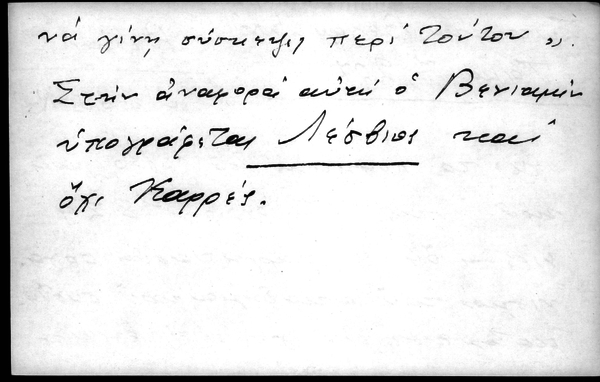 νά γίνῃ σύσκεψις περί τούτου».
Στήν ἀναφορά αὐτή ὁ Βενιαμίν
ὑπογράφεται Λέσβιος καί
ὄχι Καρρές.